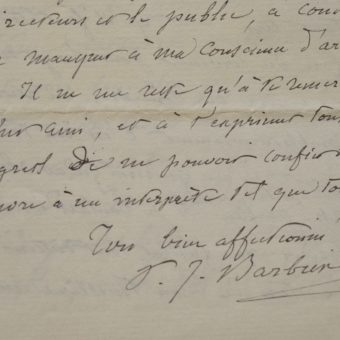 directeurs et le public, a cons
manquer à ma conscience d'ar
Il ne me reste qu'à te remer
ami, et à t'exprimer tous
regrets de ne pouvoir confier
à un interprète tel que toi
Ton bien affectionné
P. J. Barbier